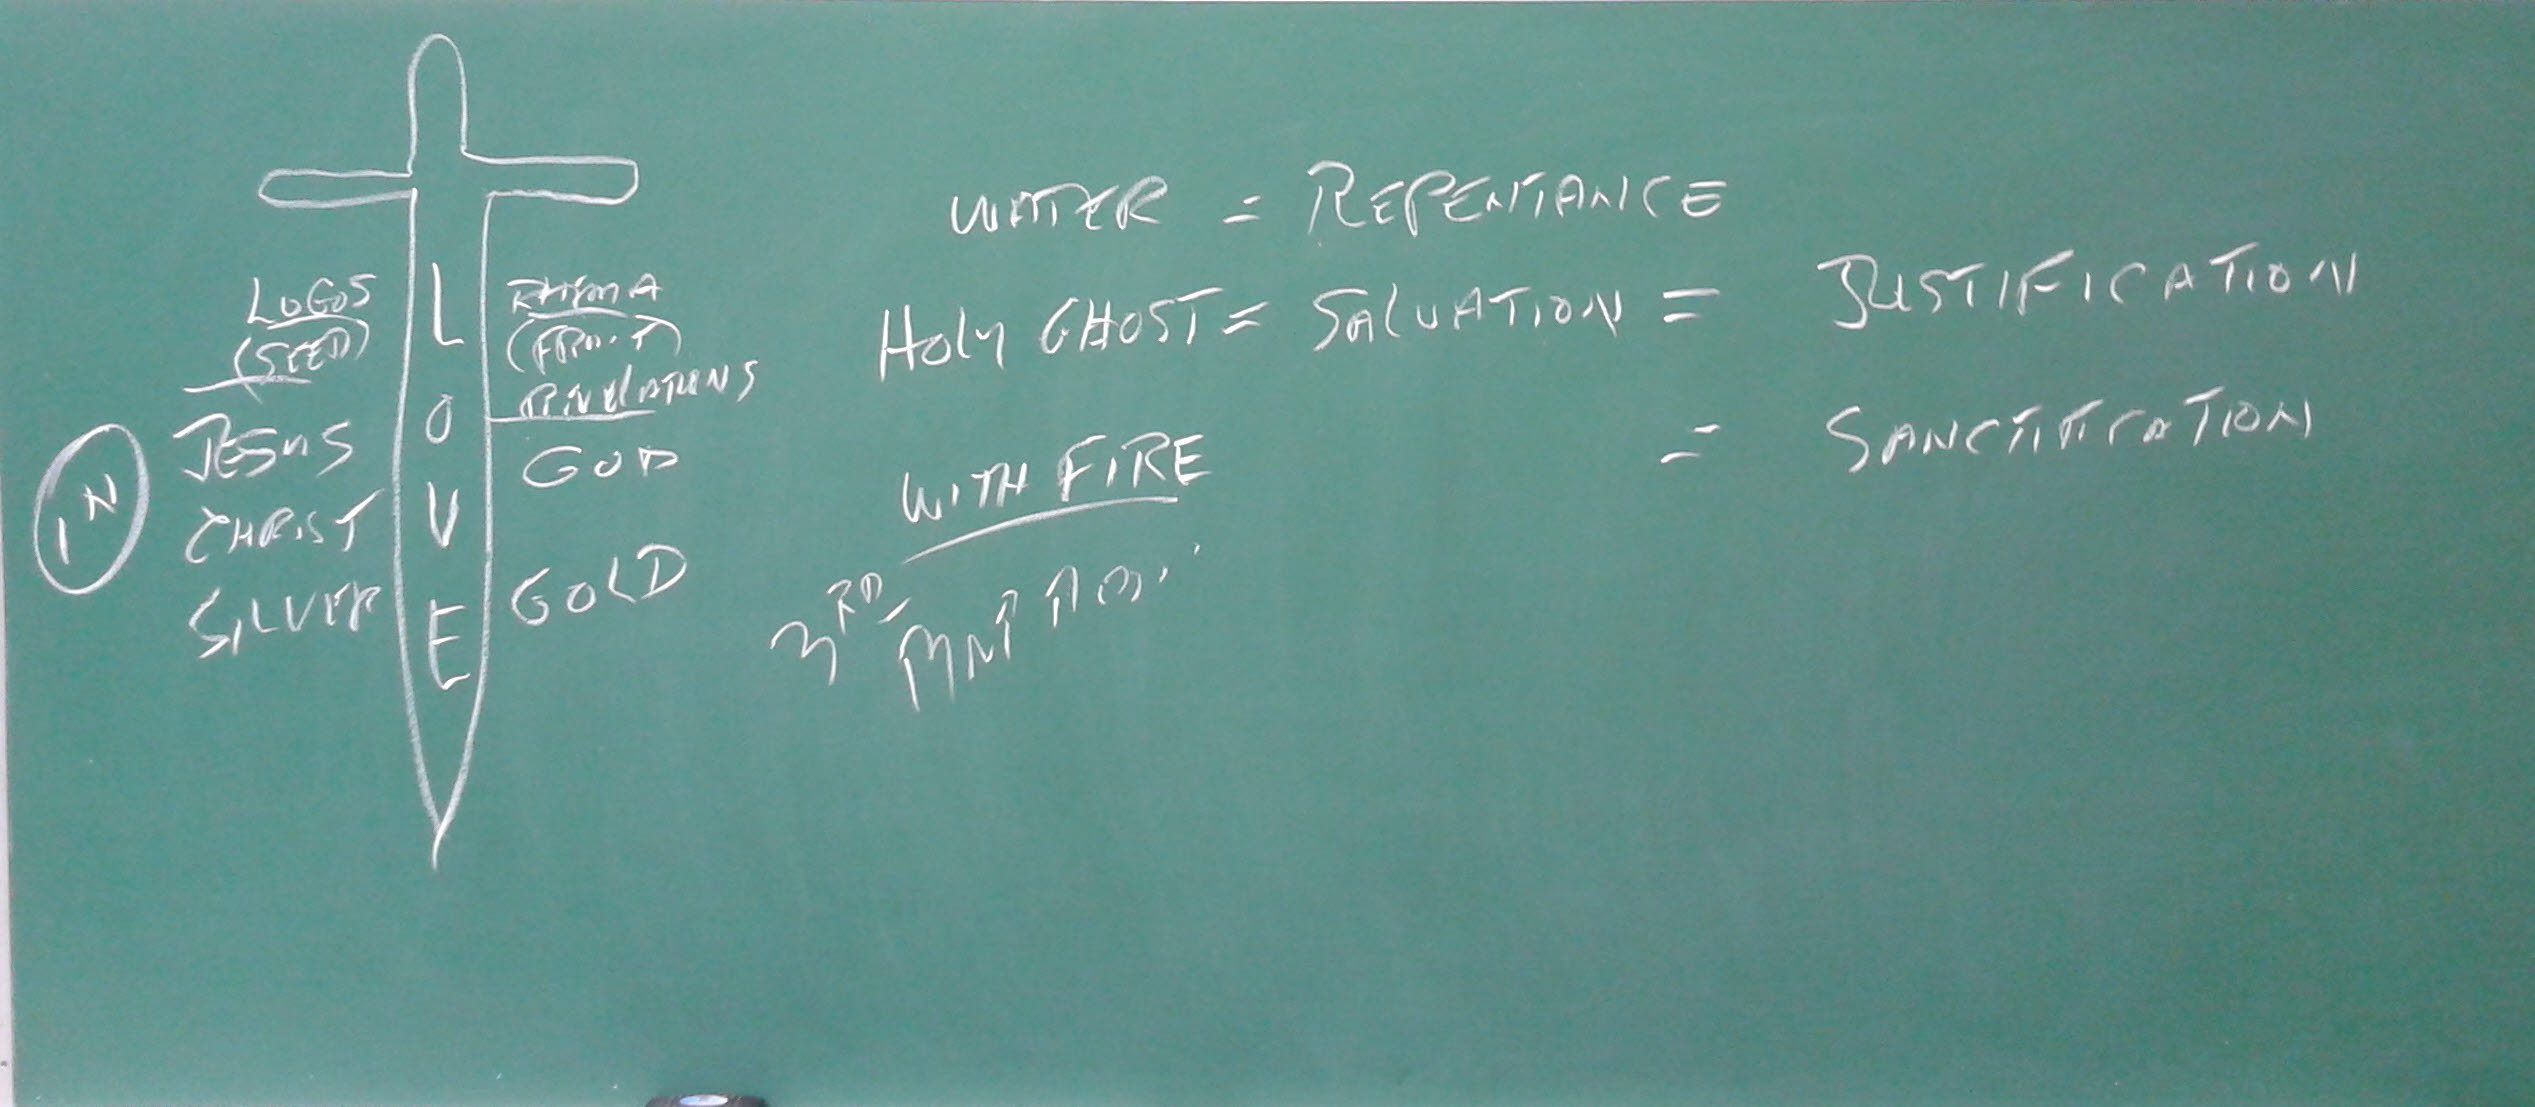 LOGOS
(SEED)
IN
JESUS
CHRIST
SILVER
L
O
V
E
RHEMA
(FRUIT)
GOD
GOLD
WATER = REPENTANCE
HOLY GHOST = SALVATION = JUSTIFICATION
= SANCTIFICATION
WITH FIRE
3RD